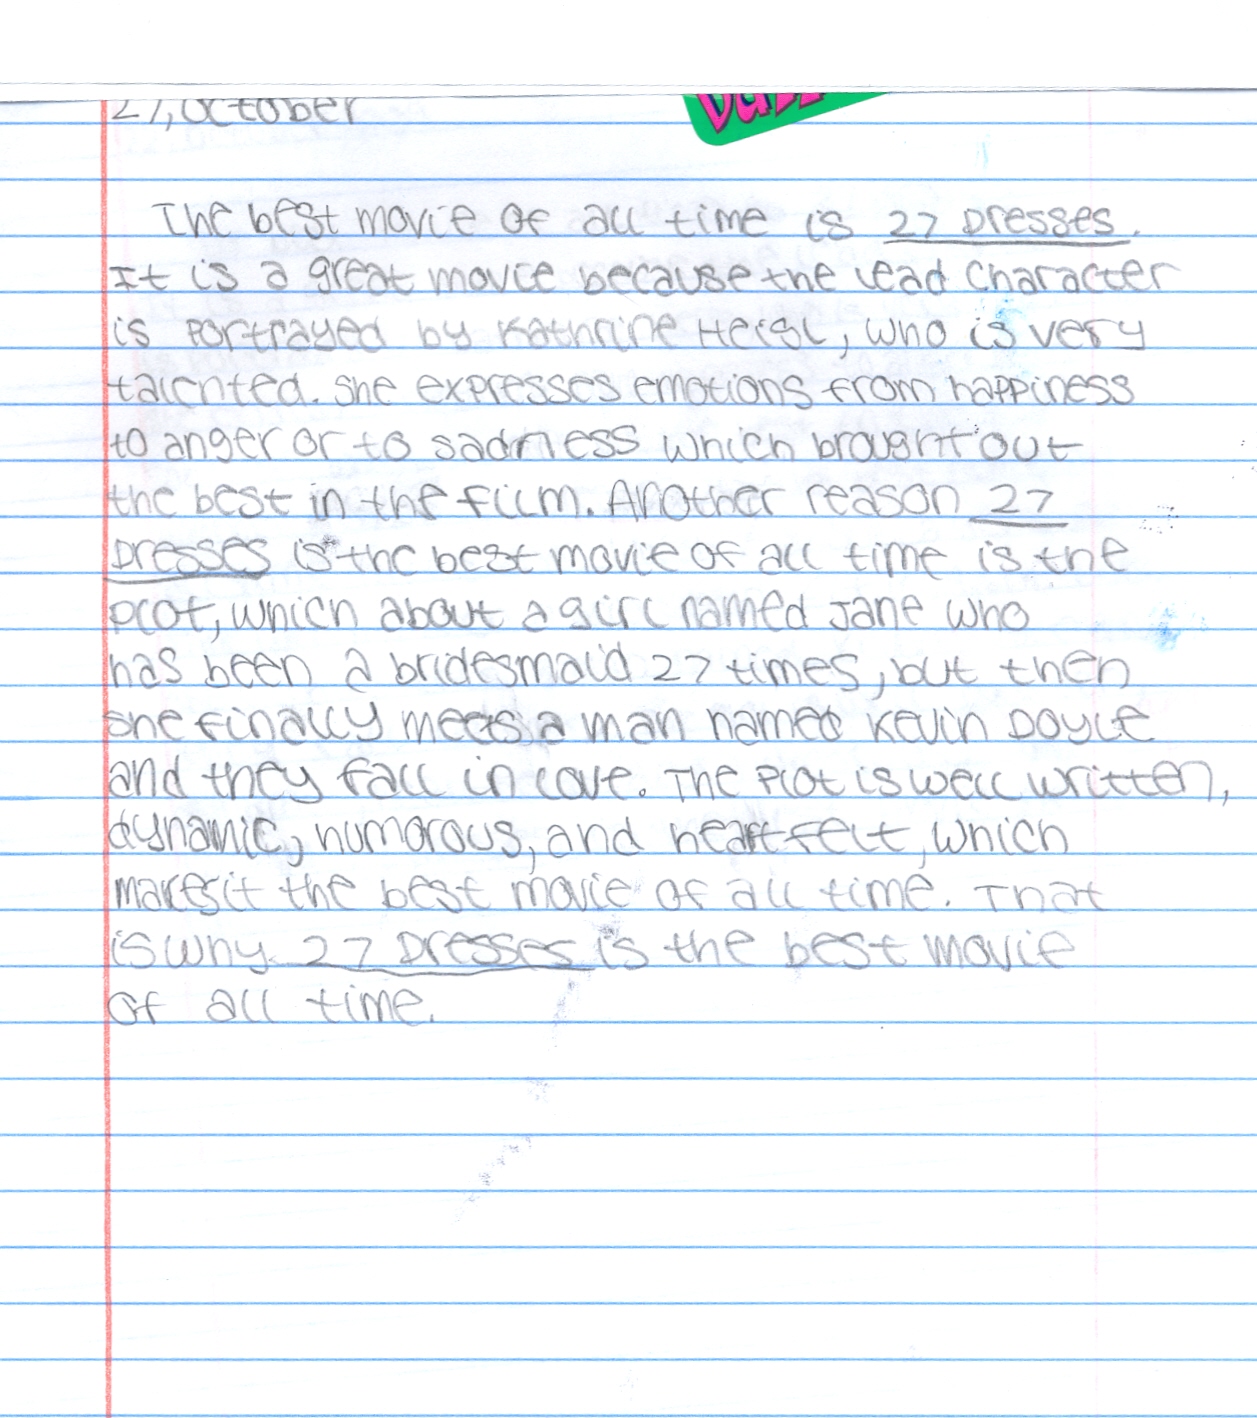 27, October
The best movie of all time is 27 Dresses.
It is a great movie because the lead character
is portrayed by Kathrine Heigl, who is very
talented. She expresses emotions from happiness
to anger or to sadness which brought out
the best in the film. Another reason 27
Dresses is the best movie of all time is the
plot, which about a girl named Jane who
has been a bridesmaid 27 times, but then
she finally meets a man named Kevin Doyle
and they fall in love. The plot is well written,
dynamic, humorous, and heartfelt, which
makes it the best movie of all time. That
is why 27 Dresses is the best movie
of all time.